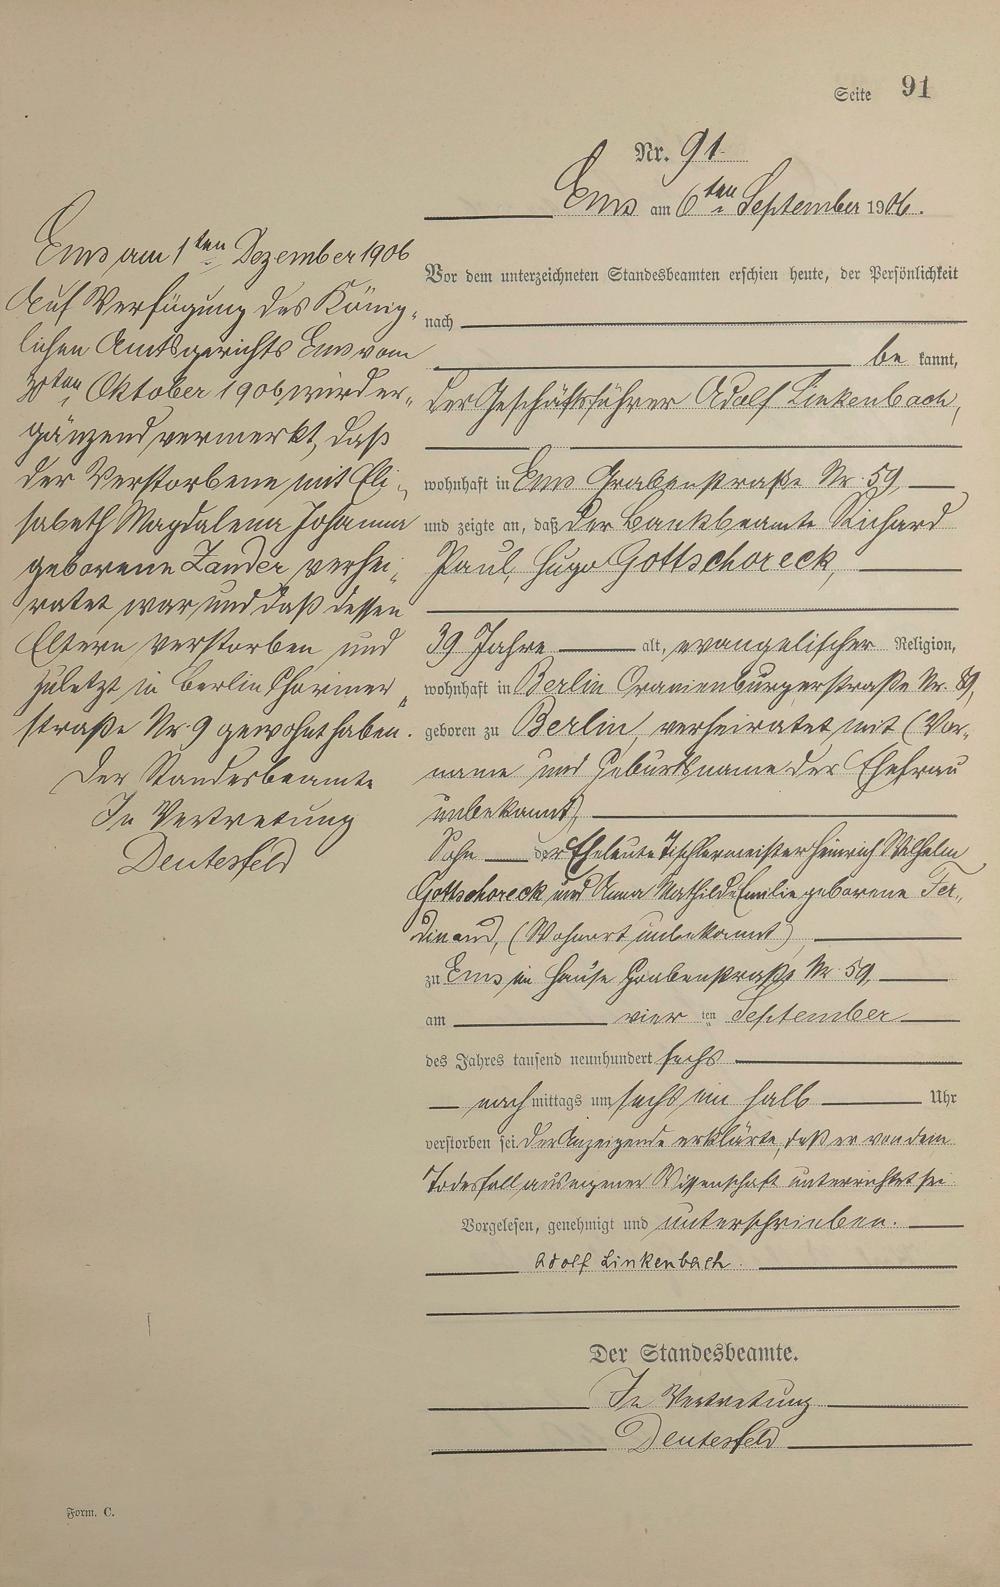 Seite 91
Nr. 91
Ems am 6ten September 1906.
Vor dem unterzeichneten Standesbeamten erschien heute, der Persönlichkeit
nach
be kannt,
der Geschäftsführer Adolf Linkenbach,
wohnhaft in Ems Grabenstraße Nr. 59
und zeigte an, daß der Bankbeamte Richard
Paul, Hugo Gottschoreck,
39 Jahre alt, evangelischer Religion,
wohnhaft in Berlin Oranienburgerstraße Nr. 89,
geboren zu Berlin, verheiratet mit (Vor-
name und Geburtsname der Ehefrau
unbekannt),
Sohn der Eheleute Tischlermeister Heinrich Wilhelm
Gottschoreck und Anna Mathilde Emilie geborene Fer-
dinand, (Wohnort unbekannt),
zu Ems im Hause Grabenstraße Nr. 59,
am vier ten September
des Jahres tausend neunhundert sechs
nach mittags um sechs ein halb Uhr
verstorben sei. Der Anzeigende erklärte, daß er von dem
Todesfall aus eigener Wissenschaft unterrichtet sei.
Vorgelesen, genehmigt und unterschrieben.
Adolf Linkenbach.
Der Standesbeamte.
In Vertretung
Deutesfeld
Ems am 1ten Dezember 1906
Auf Verfügung des König-
lichen Amtsgerichts Ems vom
Oktober 1906 wird er-
gänzend vermerkt, daß
der Verstorbene mit Eli-
sabeth Magdalena Johanna
geborene Zander verhei-
ratet war und daß dessen
Eltern verstorben und
zuletzt in Berlin Choriner
straße Nr. 9 gewohnt haben.
Der Standesbeamte
In Vertretung
Deutesfeld
Form. C.